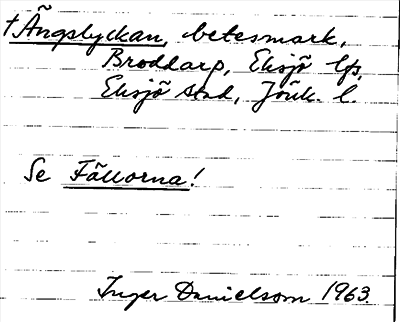 †Ängslyckan, betesmark,
Broddarp, Eksjö lfs,
Eksjö stad, Jönk. l.
Se Fållorna!
Inger Danielsom 1963.